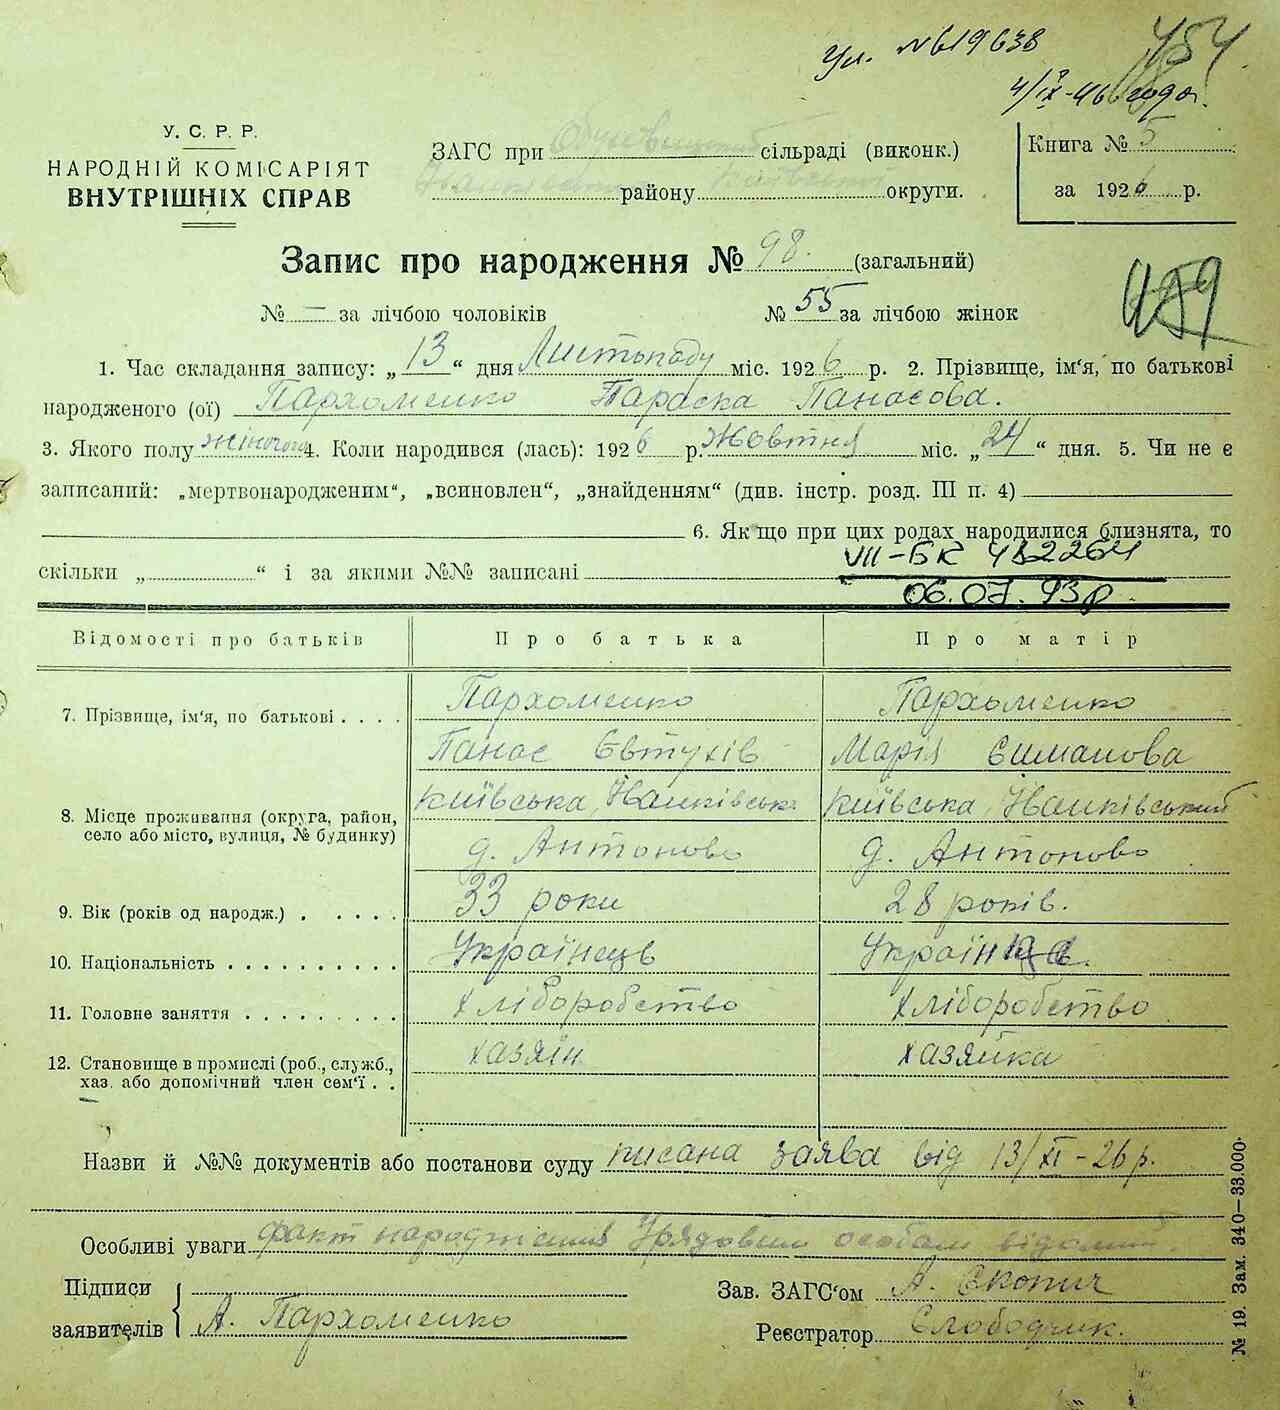 Ул. №619638
454
4/IX-46 года.
У. С. Р. Р.
НАРОДНІЙ КОМІСАРІЯТ
ВНУТРІШНІХ СПРАВ
ЗАГС при сільраді (виконк.)
району округи.
Книга № 5
за 1926 р.
Запис про народження № 98. (загальний)
№ — за лічбою чоловіків № 55 за лічбою жінок
1. Час складання запису: „13“ дня Листопаду міс. 1926 р. 2. Прізвище, ім‘я, по батькові
народженого (ої) Пархоменко Параска Панасова.
3. Якого полу жіночого 4. Коли народився (лась): 1926 р. Жовтня міс. „24“ дня. 5. Чи не є
записаний: „мертвонародженим“, „всиновлен“, „знайденням“ (див. інстр. розд. III п. 4)
6. Якщо при цих родах народилися близнята, то
скільки „ “ і за якими №№ записані
VII-БК 482264
06.07.93р.
Відомості про батьків Про батька Про матір
7. Прізвище, ім‘я, по батькові . . . . Пархоменко Пархоменко
Панас Євтухів Марія Симанова
8. Місце проживання (округа, район, село або місто, вулиця, № будинку) Київська, Іванківськ Київська, Іванківський
д. Антоново д. Антоново
9. Вік (років од народж.) . . . . . 33 роки 28 років.
10. Національність . . . . . . . . . . Українець Українка.
11. Головне заняття . . . . . . . . . Хліборобство Хліборобство
12. Становище в промислі (роб., служб., хаз. або допомічний член сем‘ї . . хазяїн хазяйка
Назви й №№ документів або постанови суду писана заява від 13/XI-26 р.
Особливі уваги факт народження Урядовим особам відомий.
Підписи
заявителів А. Пархоменко
Зав. ЗАГС‘ом А. Скопич
Реєстратор Слободчик.
№ 19. Зам. 340—33.000.